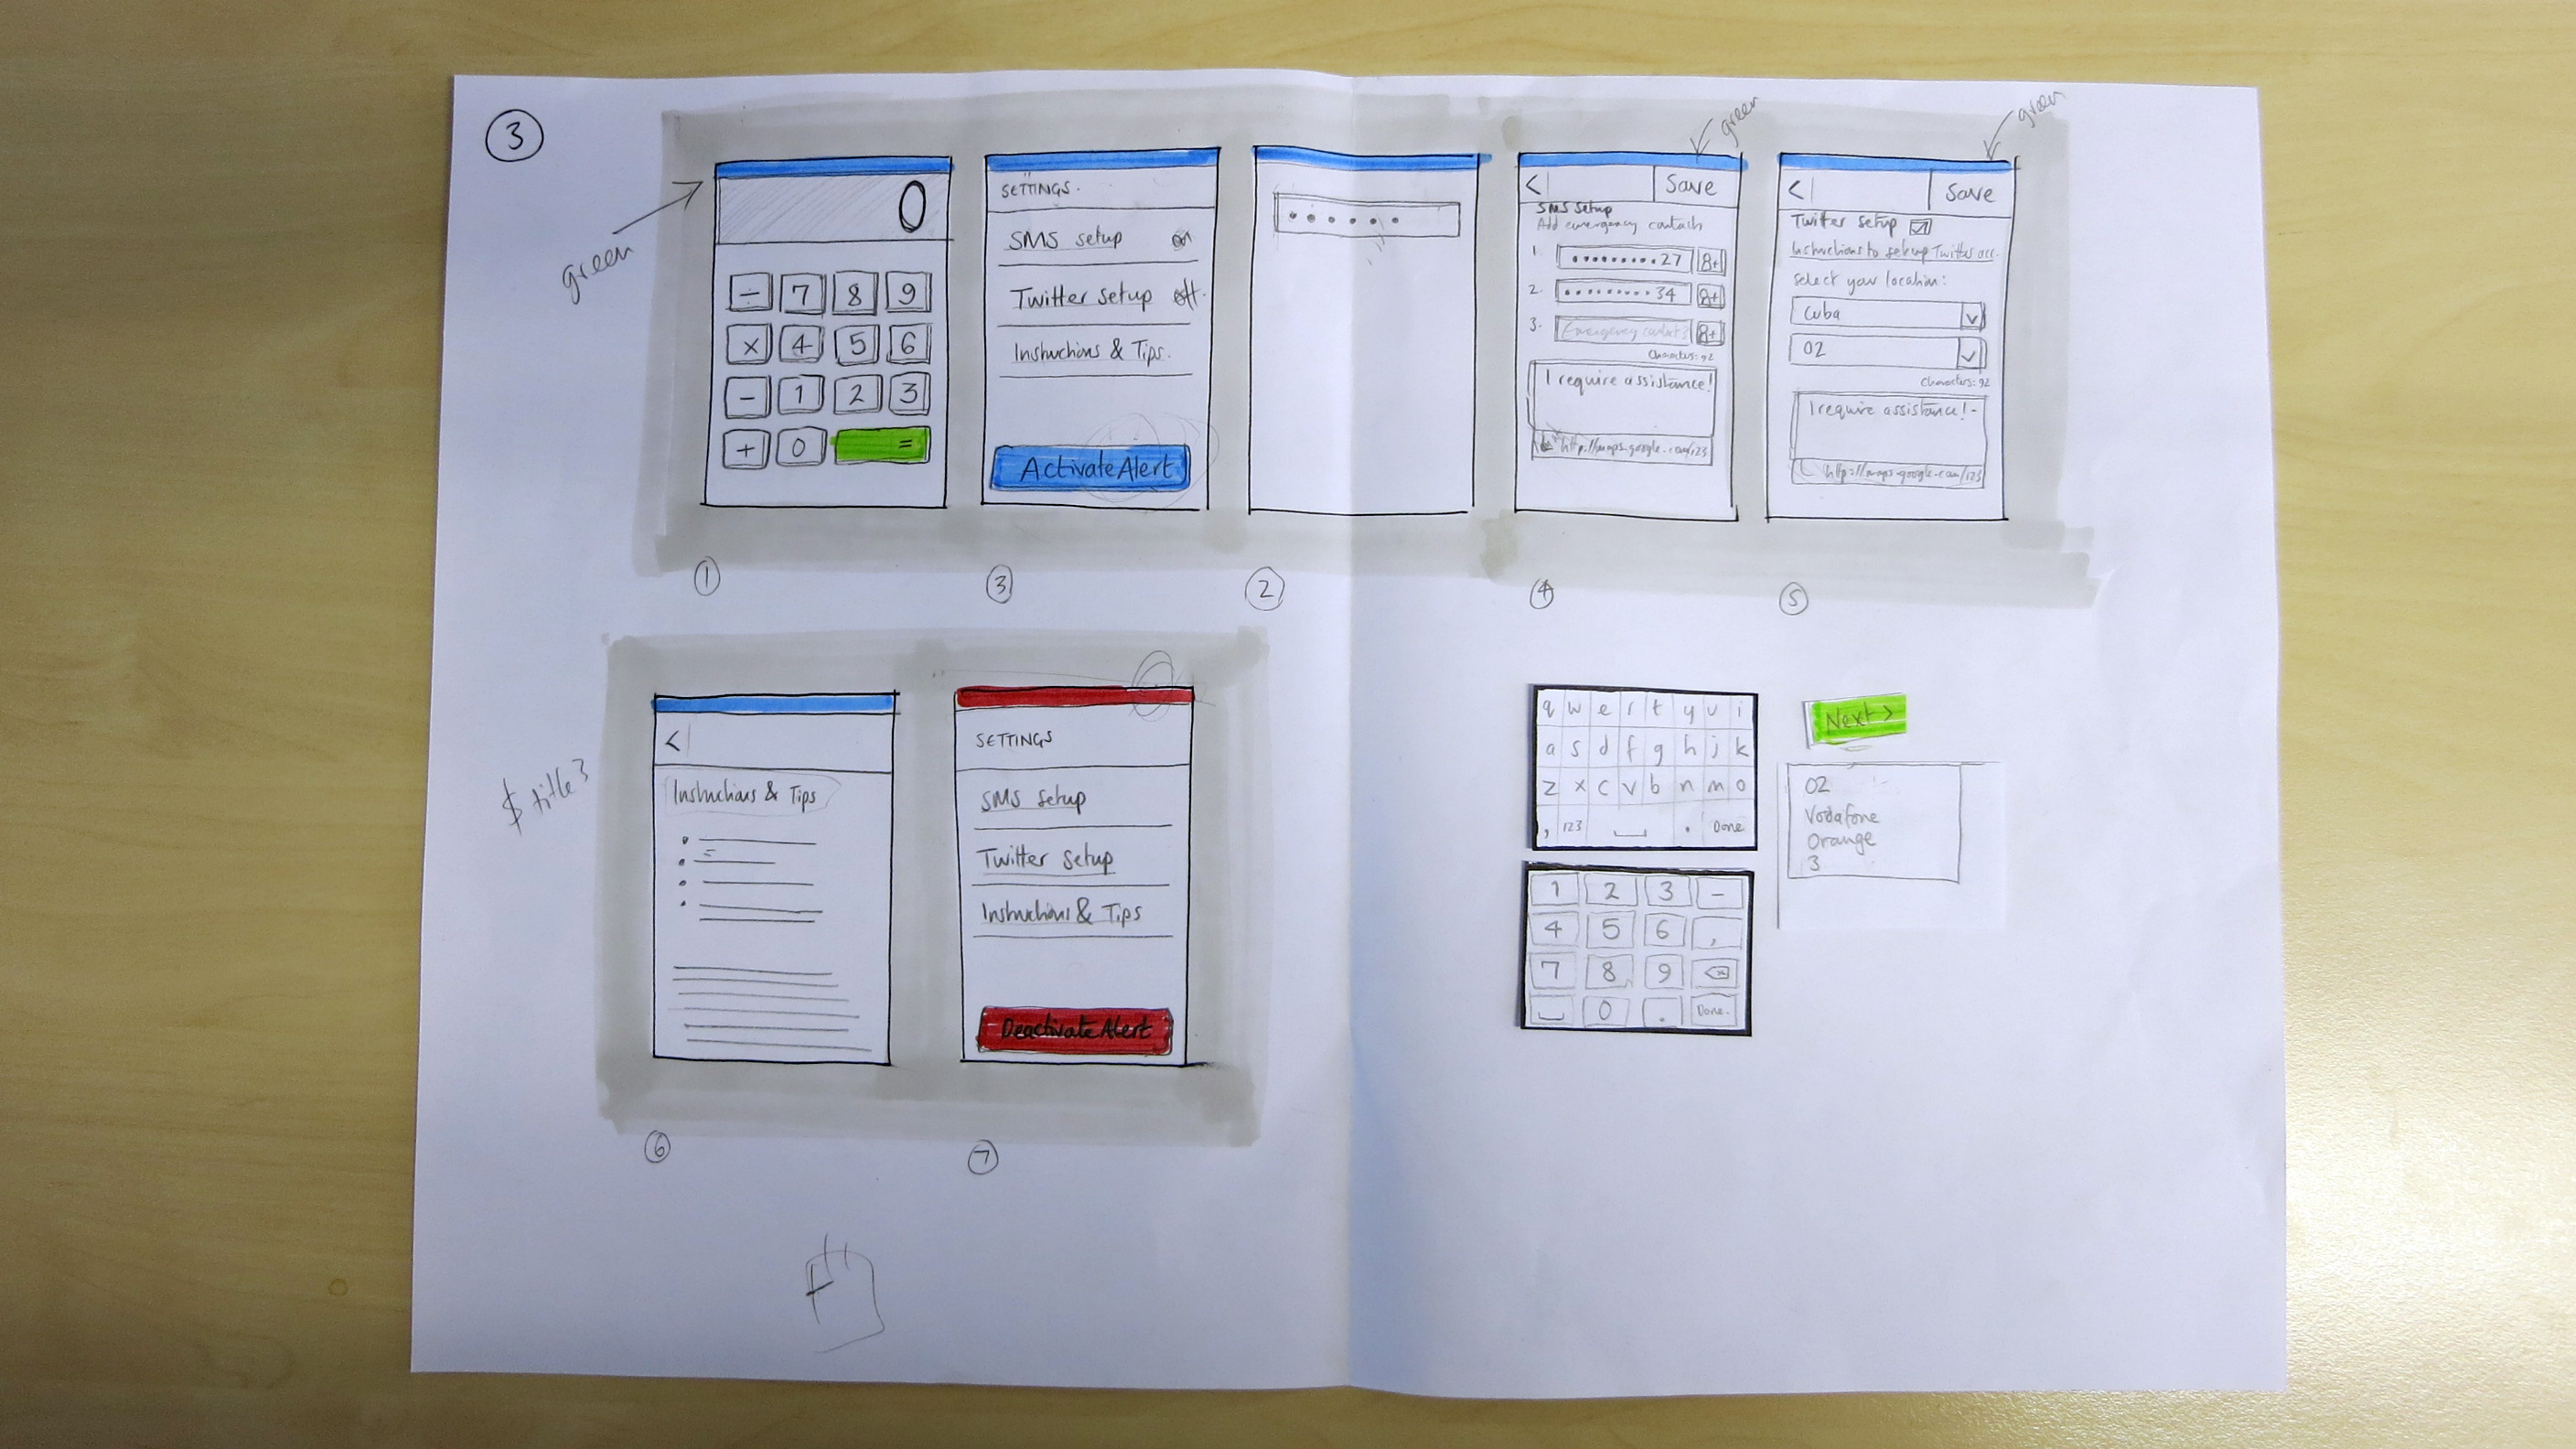 3
green
0
÷ 7 8 9
× 4 5 6
- 1 2 3
+ 0 =
1
SETTINGS.
SMS setup on
Twitter setup off.
Instructions & Tips.
Activate Alert
3
2
green
< Save
SMS Setup
Add emergency contacts
1. 27 8+
2. 34 8+
3. Emergency contact 3 8+
Characters: 92
I require assistance!
http://maps.google.com/123
4
green
< Save
Twitter setup
Instructions to setup Twitter acc.
Select your location:
Cuba
02
Characters: 92
I require assistance! -
http://maps.google.com/123
5
$ title 3
<
Instructions & Tips
6
SETTINGS
SMS setup
Twitter setup
Instructions & Tips
Deactivate Alert
7
q w e r t y u i
a s d f g h j k
z x c v b n m o
, 123 . Done
1 2 3 -
4 5 6 ,
7 8 9
0 . Done.
Next >
02
Vodafone
Orange
3